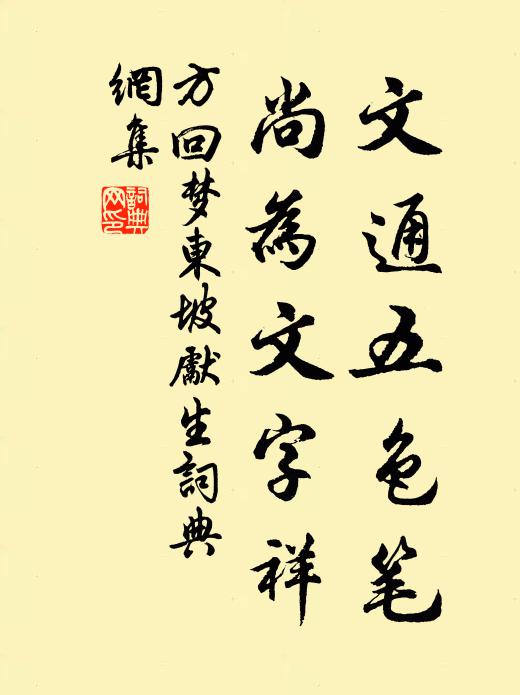 文通五色笔
尚為文字祥
方回梦東坡獻生詞典
網集
詞典
网印